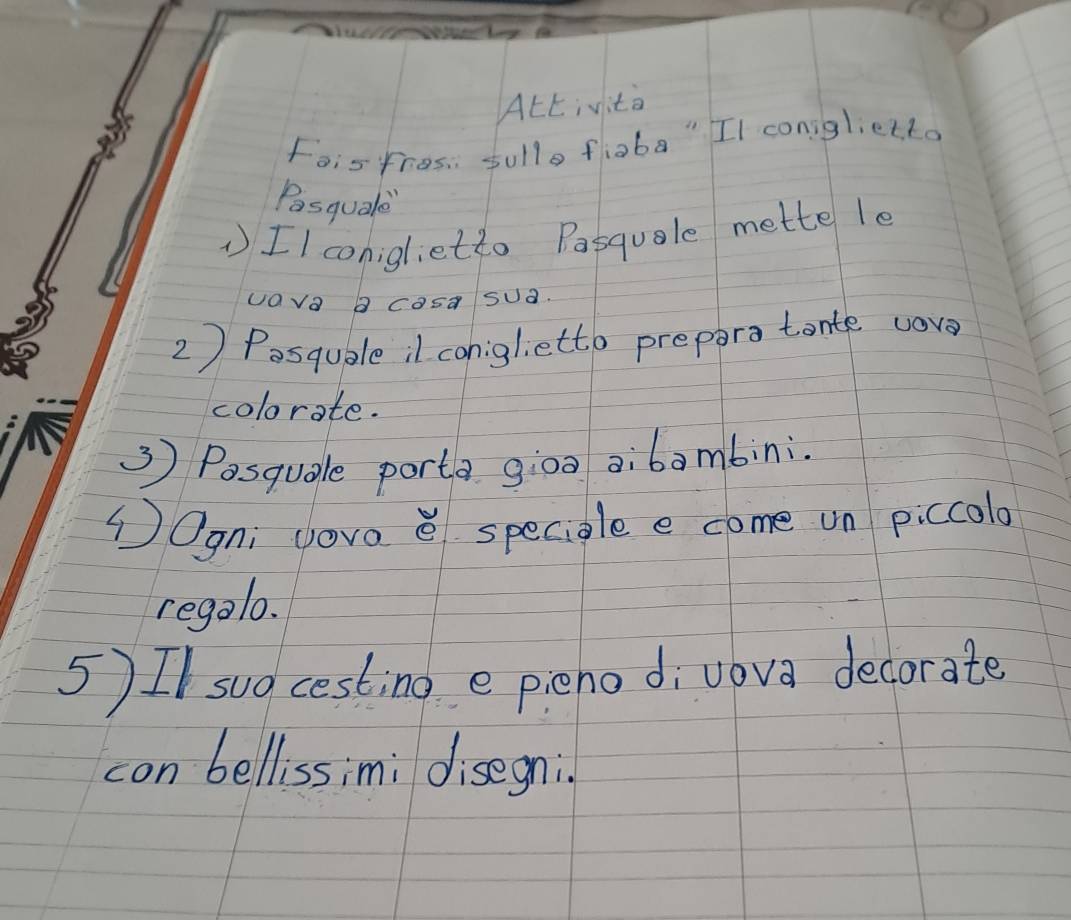 Attività
Fai 5 frasi sulla fiaba "Il coniglietto
Pasquale"
1) Il coniglietto Pasquale mette le
uova a casa sua.
2) Pasquale il coniglietto prepara tante uova
colorate.
3) Pasquale porta gioa ai bambini.
4) Ogni uova è speciale e come un piccolo
regalo.
5) Il suo cestino e pieno di uova decorate
con bellissimi disegni.